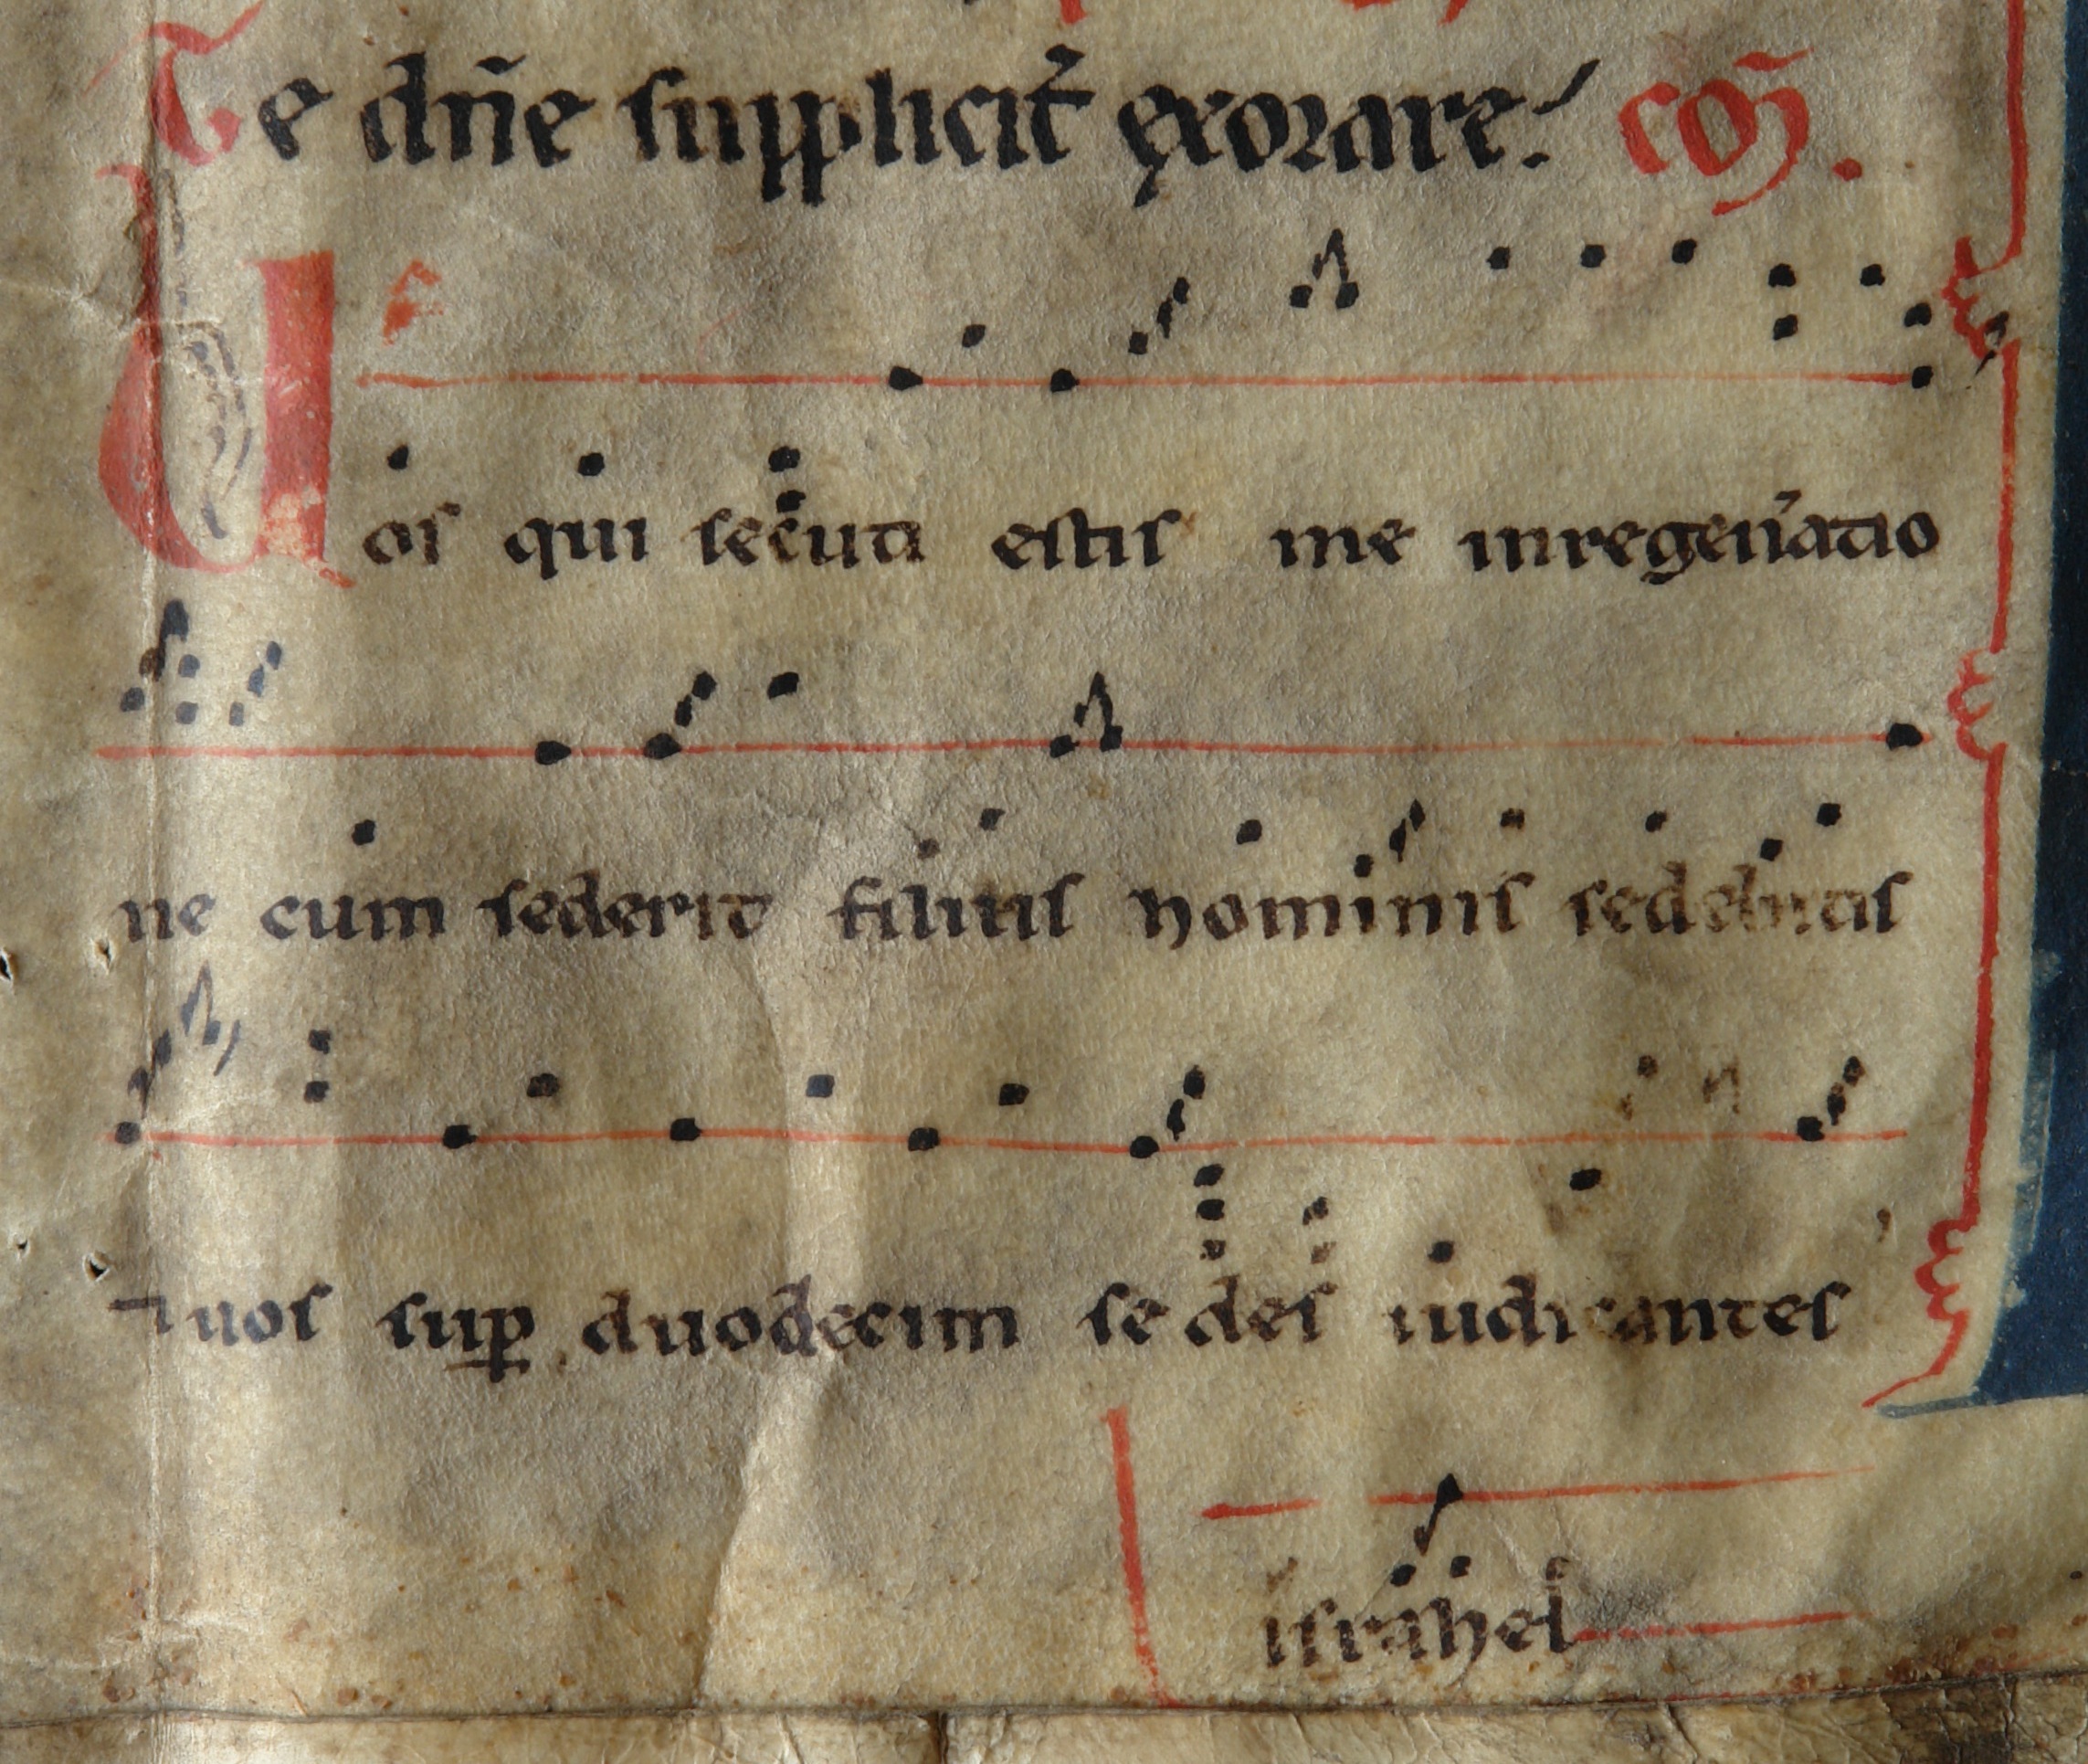 Te dn̄e supplicit᷑ exorare. cōȝ.
F
Uos qui secuti estis me inregen̾atio
ne cum sederit filius hominis sedebitis
⁊ uos suꝑ duodecim sedes iudicantes
israhel